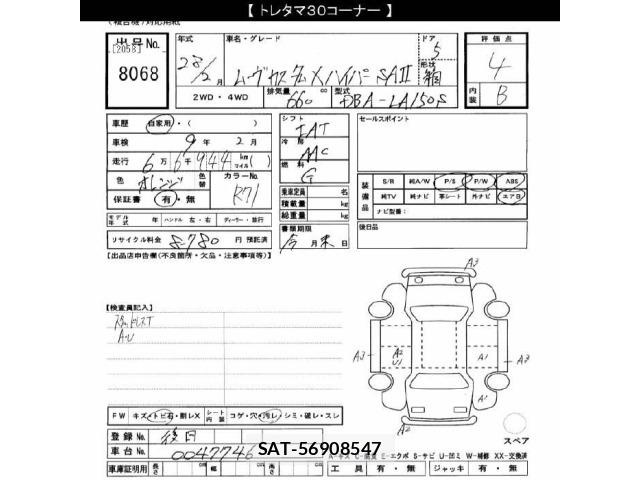 【 トレタマ30コーナー 】
(複合機)対応用紙
出号No.
[2058]
8068
年式
28/2月
車名・グレード
ムーヴカスタムXハイパーSAⅡ
ドア
5
形状
箱
評価点
4
内装
B
2WD・4WD
排気量
660
cc
型式
DBA-LA150S
車歴
自家用・( )
車検
9年2月
走行
6万6千944
km
マイル
( )
色
オレンジ
色替
カラーNo.
R71
保証書
有・無
モデル年式
年
ハンドル 左・右
ディーラー・並行
リサイクル料金
8780
円 預託済
シフト
IAT
冷房
AAC
燃料
G
乗車定員
名
積載量
kg
総重量
kg
書類期限
今月末日
セールスポイント
装備品
S/R
純A/W
P/S
P/W
ABS
純TV
純ナビ
革シート
外ナビ
エアB
ナビ型番:
後日品
【出品店申告欄(不良箇所・欠品・注意事項等)】
【検査員記入】
A・U
A3
A3
A2
U1
A1
A1
A3
A3
スペア
FW
キズ・トビ石・割レX
シート内装
コゲ・穴・汚レ・シミ・破レ・スレ
登録No.
後日
車台No.
0047746
SAT-56908547
A-キズ
E-エクボ S-サビ U-凹ミ W-補修 XX-交換済
車庫証明用
長さ
cm
幅
cm
高さ
cm
工具
有・無
ジャッキ
有・無